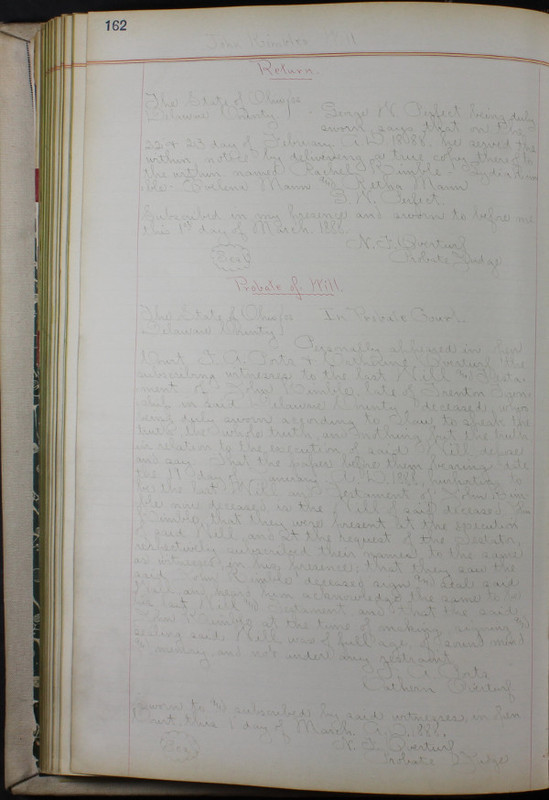 162
John Kimble Will
Return.
The State of Ohio ss
Delaware County George M. Perfect being duly
sworn says that on the
22 & 23 day of February A.D. 1888. he served the
within notice by delivering a true copy thereof to
the within named Rachel Kimble Lydia
Evelena Mann & Mann
G. M. Perfect.
Subscribed in my presence and sworn to before me
this 1st day of March 1888.
N. F. Overturf
Seal Probate Judge
Probate of Will.
The State of Ohio ss In Probate Court.
Delaware County
Personally appeared in open
Court & Catherine Overturf the
subscribing witnesses to the last Will & Testa-
ment of John Kimble, late of Trenton Town-
ship in said Delaware County deceased, who
being duly sworn according to law to speak the
truth the whole truth, and nothing but the truth
in relation to the execution of said Will depose
and say That the paper before them bearing date
the day of January A.D. purporting to
be the last Will and Testament of John Kim-
ble now deceased is the Will of said deceased
Kimble, that they were present at the execution
of said Will, and at the request of the Testator,
respectively subscribed their names to the same
as witnesses in his presence; that they saw the
said John Kimble deceased sign & seal said
Will, and heard him acknowledge the same to be
his last Will & Testament and that the said
John Kimble at the time of making, signing &
sealing said Will was of full age, of sound mind
& memory, and not under any restraint.
Cathern Overturf
Sworn to & subscribed by said witnesses in open
Court this 1 day of March A.D. 1888.
N. F. Overturf
Seal Probate Judge